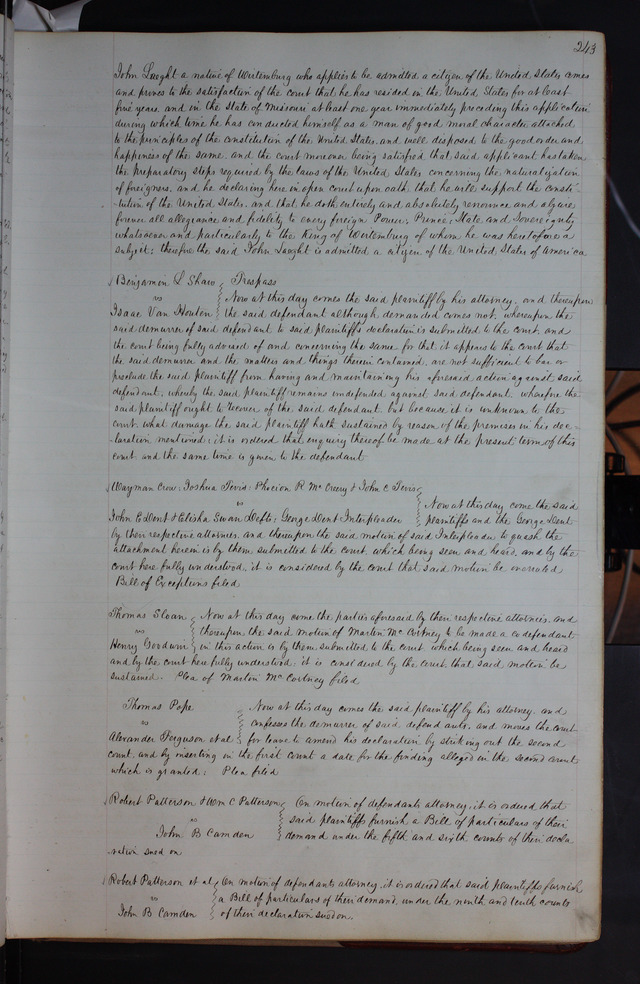 243
John Laught a native of Wirtemburg who applies to be admitted a citizen of the United States comes
and proves to the satisfaction of the court that he has resided in the United States for at least
five years, and in the State of Missouri at least one year immediately preceding this application
during which time he has conducted himself as a man of good moral character attached
to the principles of the constitution of the United States, and well disposed to the good order and
happiness of the same. and the court moreover being satisfied that said applicant has taken
the preparatory steps required by the laws of the United States concerning the naturalization
of foreigners, and he declaring here in open court upon oath, that he will support the consti-
tution of the United States, and that he doth entirely and absolutely renounce and abjure
forever all allegiance and fidelity to every foreign Power, Prince, State and Sovereignty
whatsoever and particularly to the King of Wirtemburg of whom he was heretofore a
subject; therefore the said John Laught is admitted a citizen of the United States of America
Benjamin L Shaw Trespass
vs Now at this day comes the said plaintiff by his attorney, and thereupon
Isaac Van Houten the said defendant although demanded comes not, whereupon the
said demurrer of said defendant to said plaintiffs declaration is submitted to the court, and
the court being fully advised of and concerning the same. for that it appears to the court that
the said demurrer and the matters and things therein contained, are not sufficient to bar or
preclude the said plaintiff from having and maintaining his aforesaid action against said
defendant, whereby the said plaintiff remains undefended against said defendant. wherefore the
said plaintiff ought to recover of the said defendant, but because it is unknown to the
court, what damage the said plaintiff hath sustained by reason of the premises in his dec-
laration mentioned; it is ordered that enquiry thereof be made at the present term of this
court, and the same time is given to the defendant
Wayman Crow, Joshua Tevis, Phocion R McCreery & John C Tevis
vs Now at this day come the said
John C Dent & Elisha Swan Defts: George Dent Interpleader plaintiffs and the George Dent
by their respective attornies, and thereupon the said motion of said Interpleader to quash the
attachment herein is by them submitted to the court, which being seen and heard, and by the
court here fully understood, it is considered by the court that said motion be overruled
Bill of Exceptions filed
Thomas Sloan Now at this day come the parties aforesaid by their respective attornies, and
vs thereupon the said motion of Marton McCortney to be made a codefendant
Henry Goodwin in this action is by them submitted to the court which being seen and heard
and by the court here fully understood; it is considered by the court that said motion be
sustained. Plea of Marton McCortney filed
Thomas Pope Now at this day comes the said plaintiff by his attorney and
vs confesses the demurrer of said defendants, and moves the court
Alexander Ferguson et al for leave to amend his declaration by striking out the second
count, and by inserting in the first count a date for the finding alleged in the second count
which is granted; Plea filed
Robert Patterson & Wm C Patterson On motion of defendants attorney, it is ordered that
vs said plaintiffs furnish a Bill of particulars of their
John B Camden demand under the fifth and sixth counts of their decla
ration sued on
Robert Patterson et al On motion of defendants attorney, it is ordered that said plaintiffs furnish
vs a Bill of particulars of their demand, under the ninth and tenth counts
John B Camden of their declaration sued on.